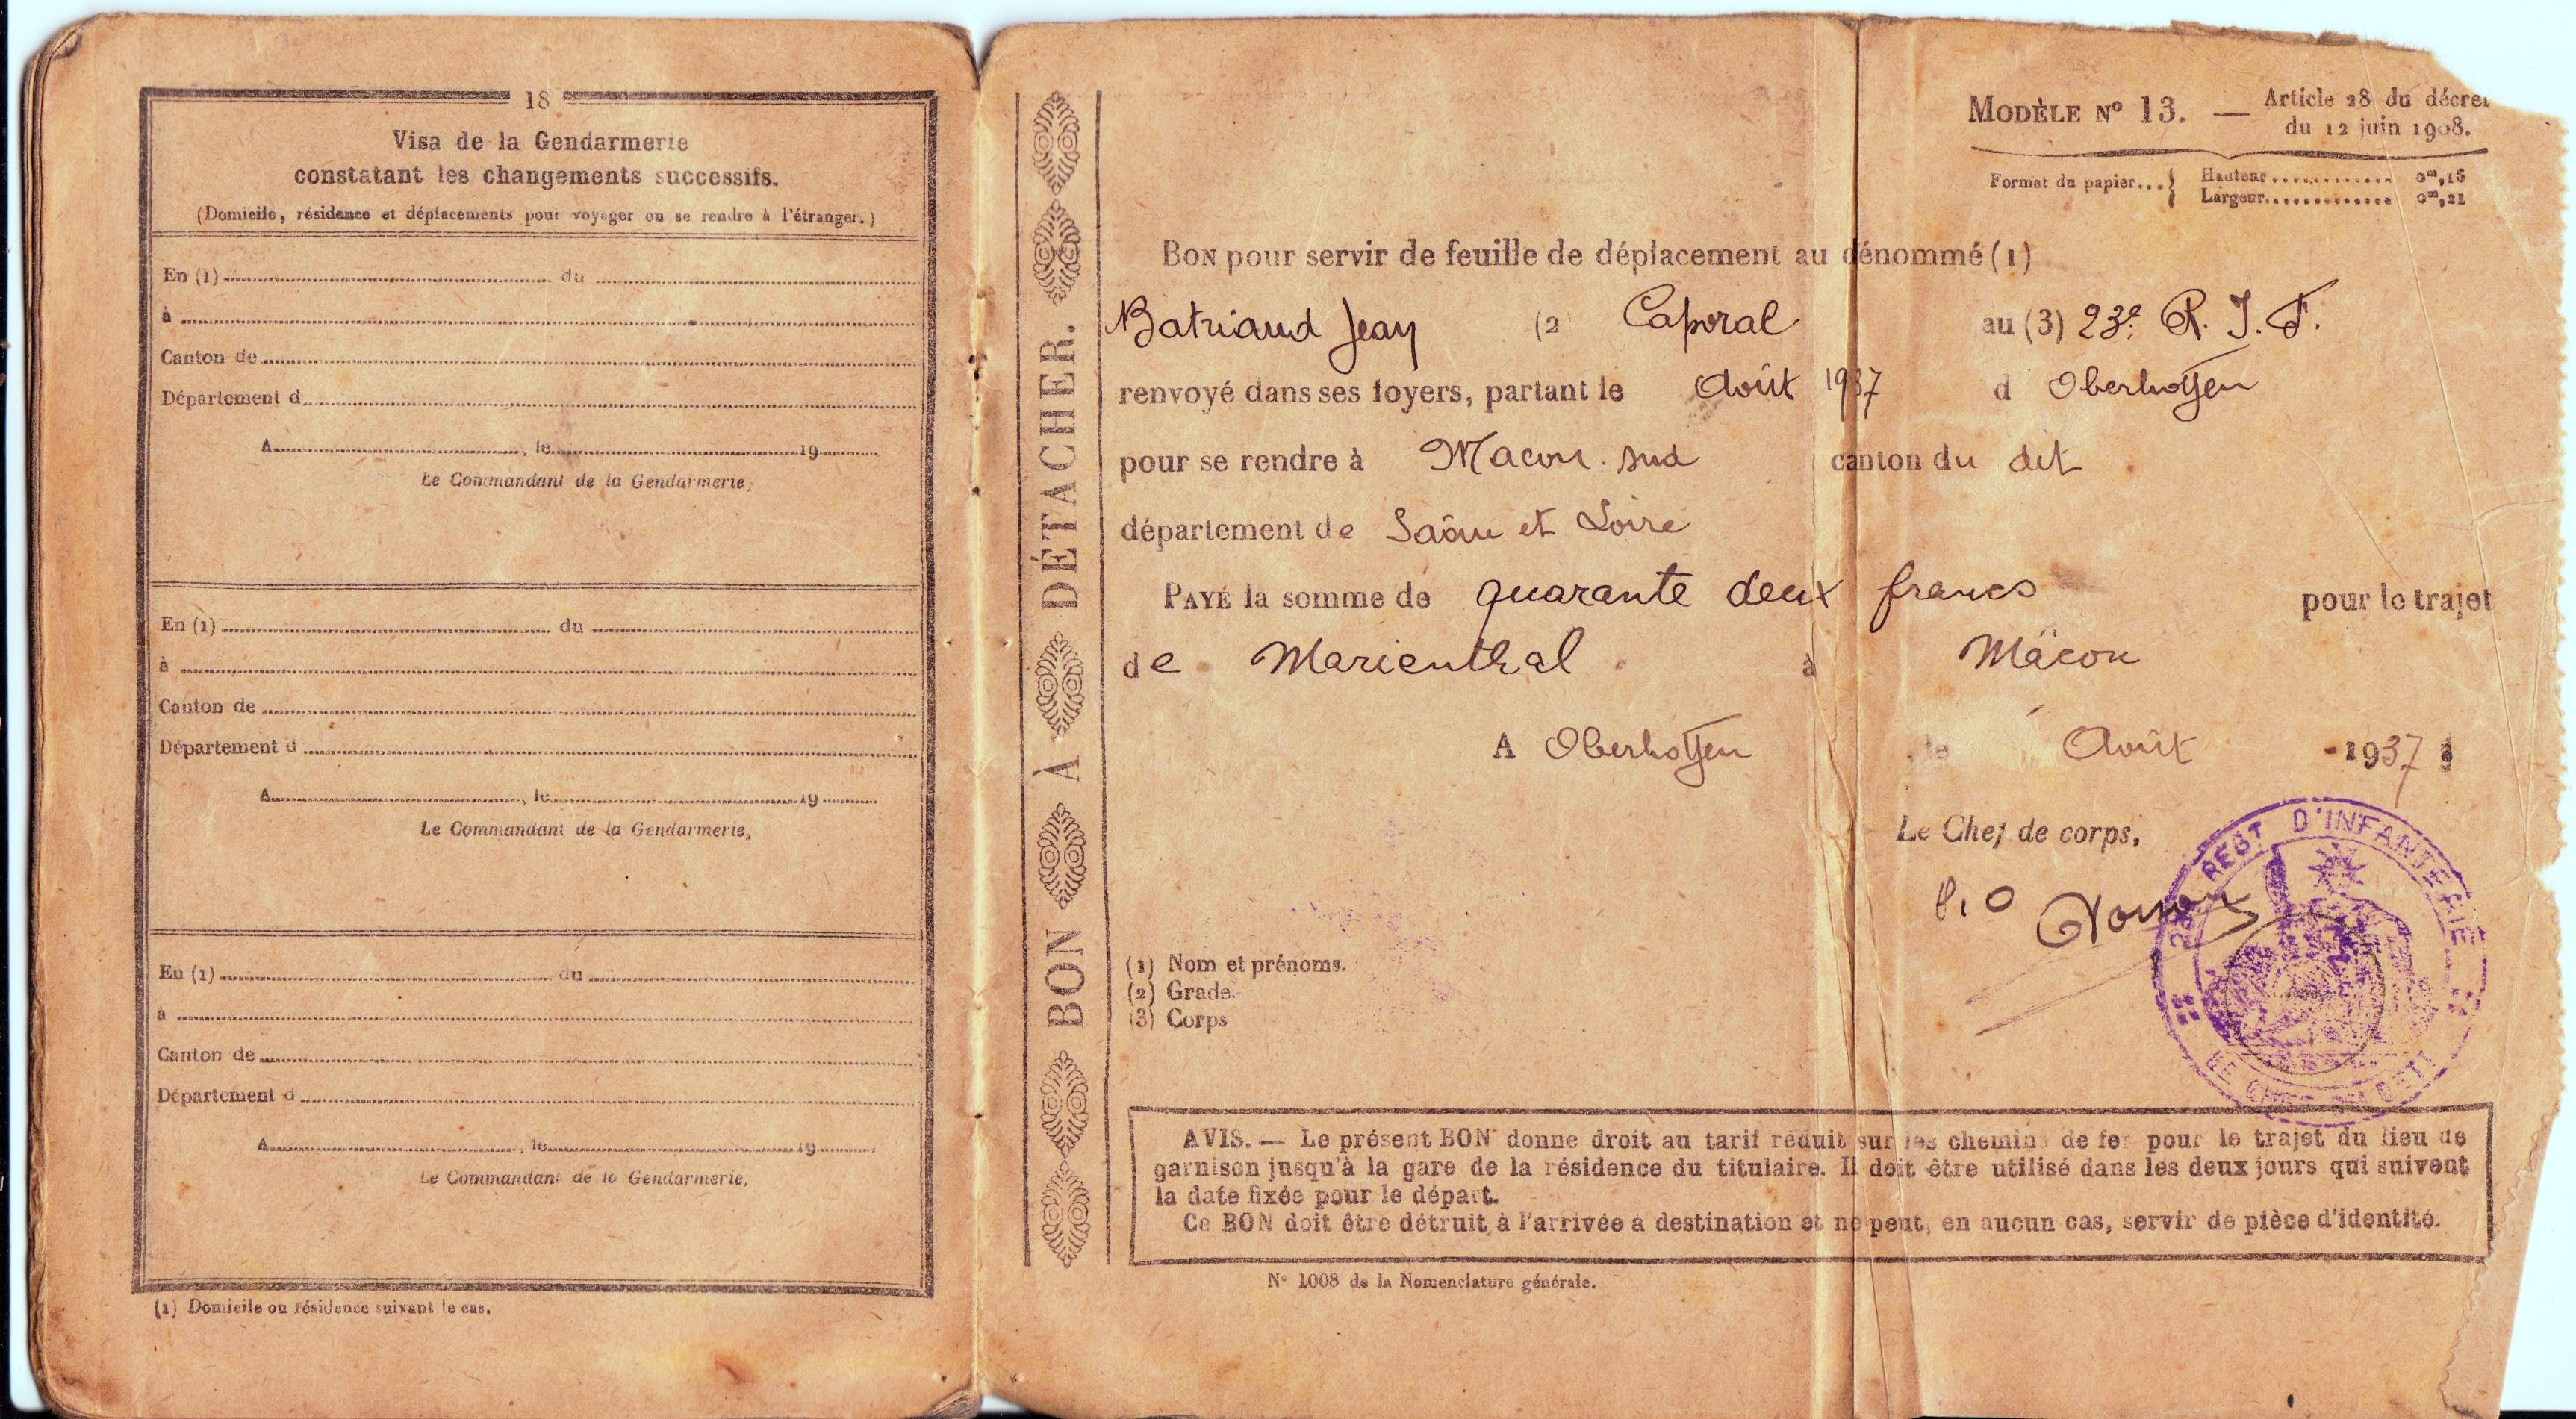 18
Visa de la Gendarmerie
constatant les changements successifs.
(Domicile, résidence et déplacements pour voyager ou se rendre à l'étranger.)
En (1) du
à
Canton de
Département d
A , le 19
Le Commandant de la Gendarmerie,
En (1) du
à
Canton de
Département d
A , le 19
Le Commandant de la Gendarmerie,
En (1) du
à
Canton de
Département d
A , le 19
Le Commandant de la Gendarmerie,
(1) Domicile ou résidence suivant le cas.
BON À DÉTACHER.
MODÈLE No 13. — Article 28 du décret
du 12 juin 1908.
Format du papier... { Hauteur............ 0m,16
Largeur............. 0m,21
BON pour servir de feuille de déplacement au dénommé (1)
Batriaud Jean (2 Caporal au (3) 23e. R. I. F.
renvoyé dans ses foyers, partant le Août 1937 d Oberhoffen
pour se rendre à Macon. sud canton du dit
département de Saône et Loire
PAYÉ la somme de quarante deux francs pour le trajet
de Marienthal à Mâcon
A Oberhoffen le Août 1937
Le Chef de corps,
P. O
23e REGT D'INFANTERIE
(1) Nom et prénoms.
(2) Grade.
(3) Corps
AVIS. — Le présent BON donne droit au tarif réduit sur les chemins de fer pour le trajet du lieu de
garnison jusqu'à la gare de la résidence du titulaire. Il doit être utilisé dans les deux jours qui suivent
la date fixée pour le départ.
Ce BON doit être détruit à l'arrivée à destination et ne peut, en aucun cas, servir de pièce d'identité.
No 1008 de la Nomenclature générale.